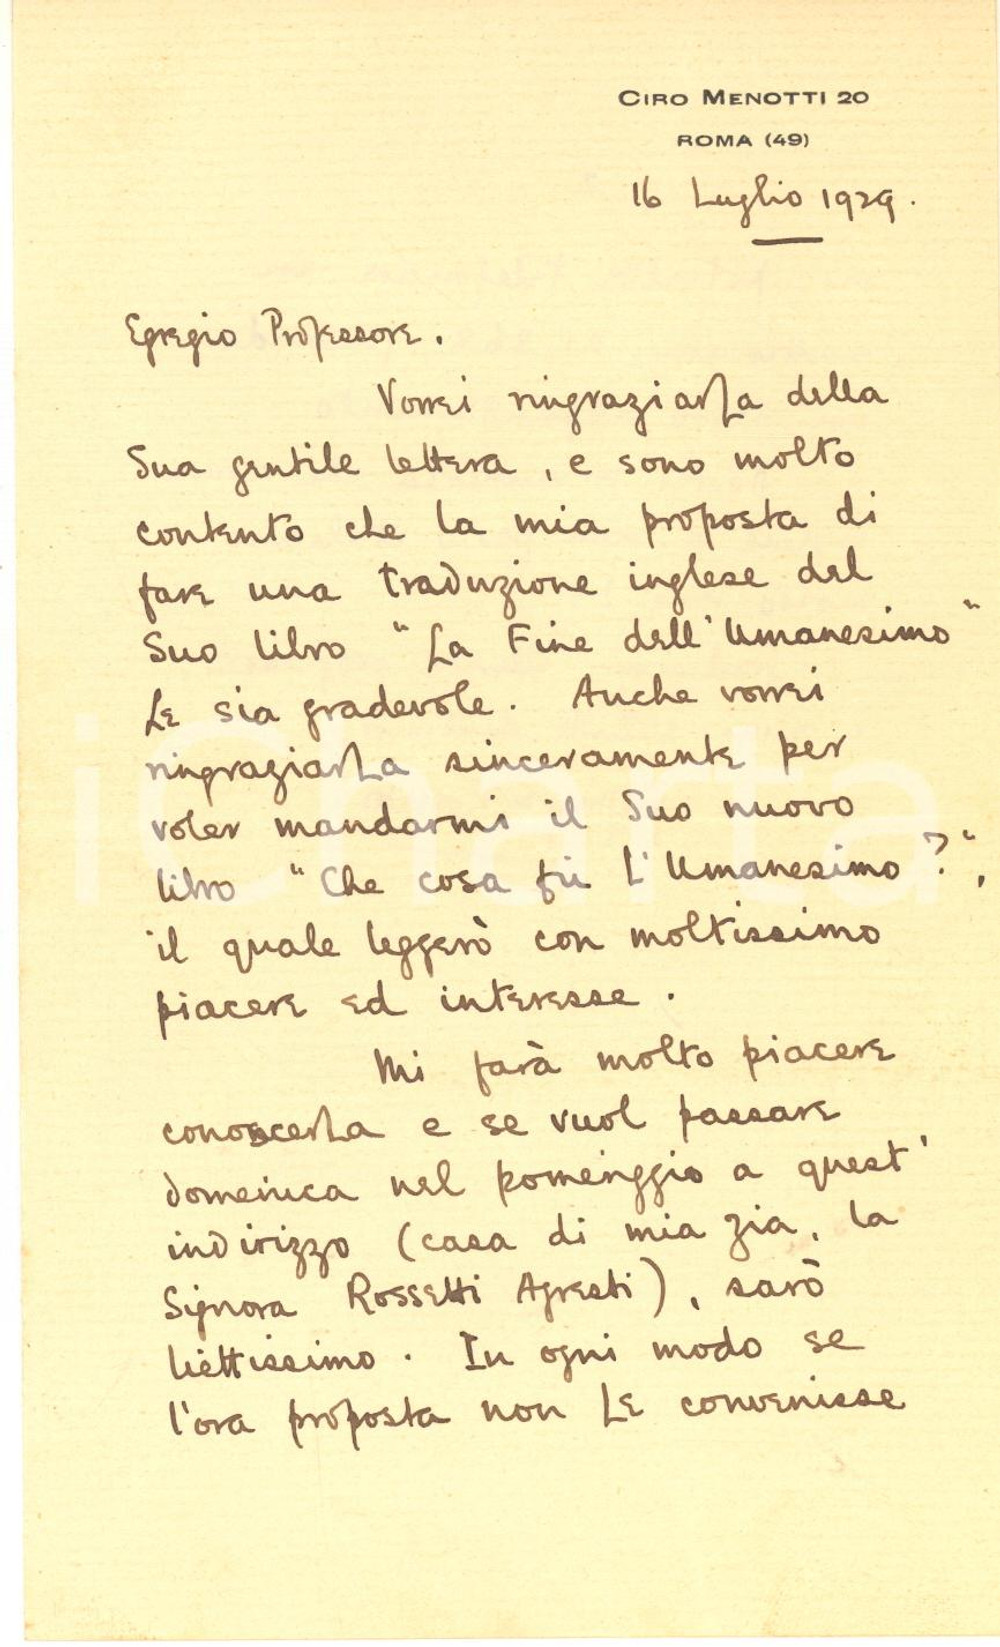 CIRO MENOTTI 20
ROMA (49)
16 Luglio 1929.
Egregio Professore.
Vorrei ringraziarLa della
Sua gentile lettera, e sono molto
contento che la mia proposta di
fare una traduzione inglese del
Suo libro "La Fine dell'Umanesimo"
Le sia gradevole. Anche vorrei
ringraziarLa sinceramente per
voler mandarmi il Suo nuovo
libro "Che cosa fù l'Umanesimo?",
il quale leggerò con moltissimo
piacere ed interesse.
Mi farà molto piacere
conoscerLa e se vuol passare
domenica nel pomeriggio a quest'
indirizzo (casa di mia zia, la
Signora Rossetti Agresti), sarò
liettissimo. In ogni modo se
l'ora proposta non Le convenisse
iCharta